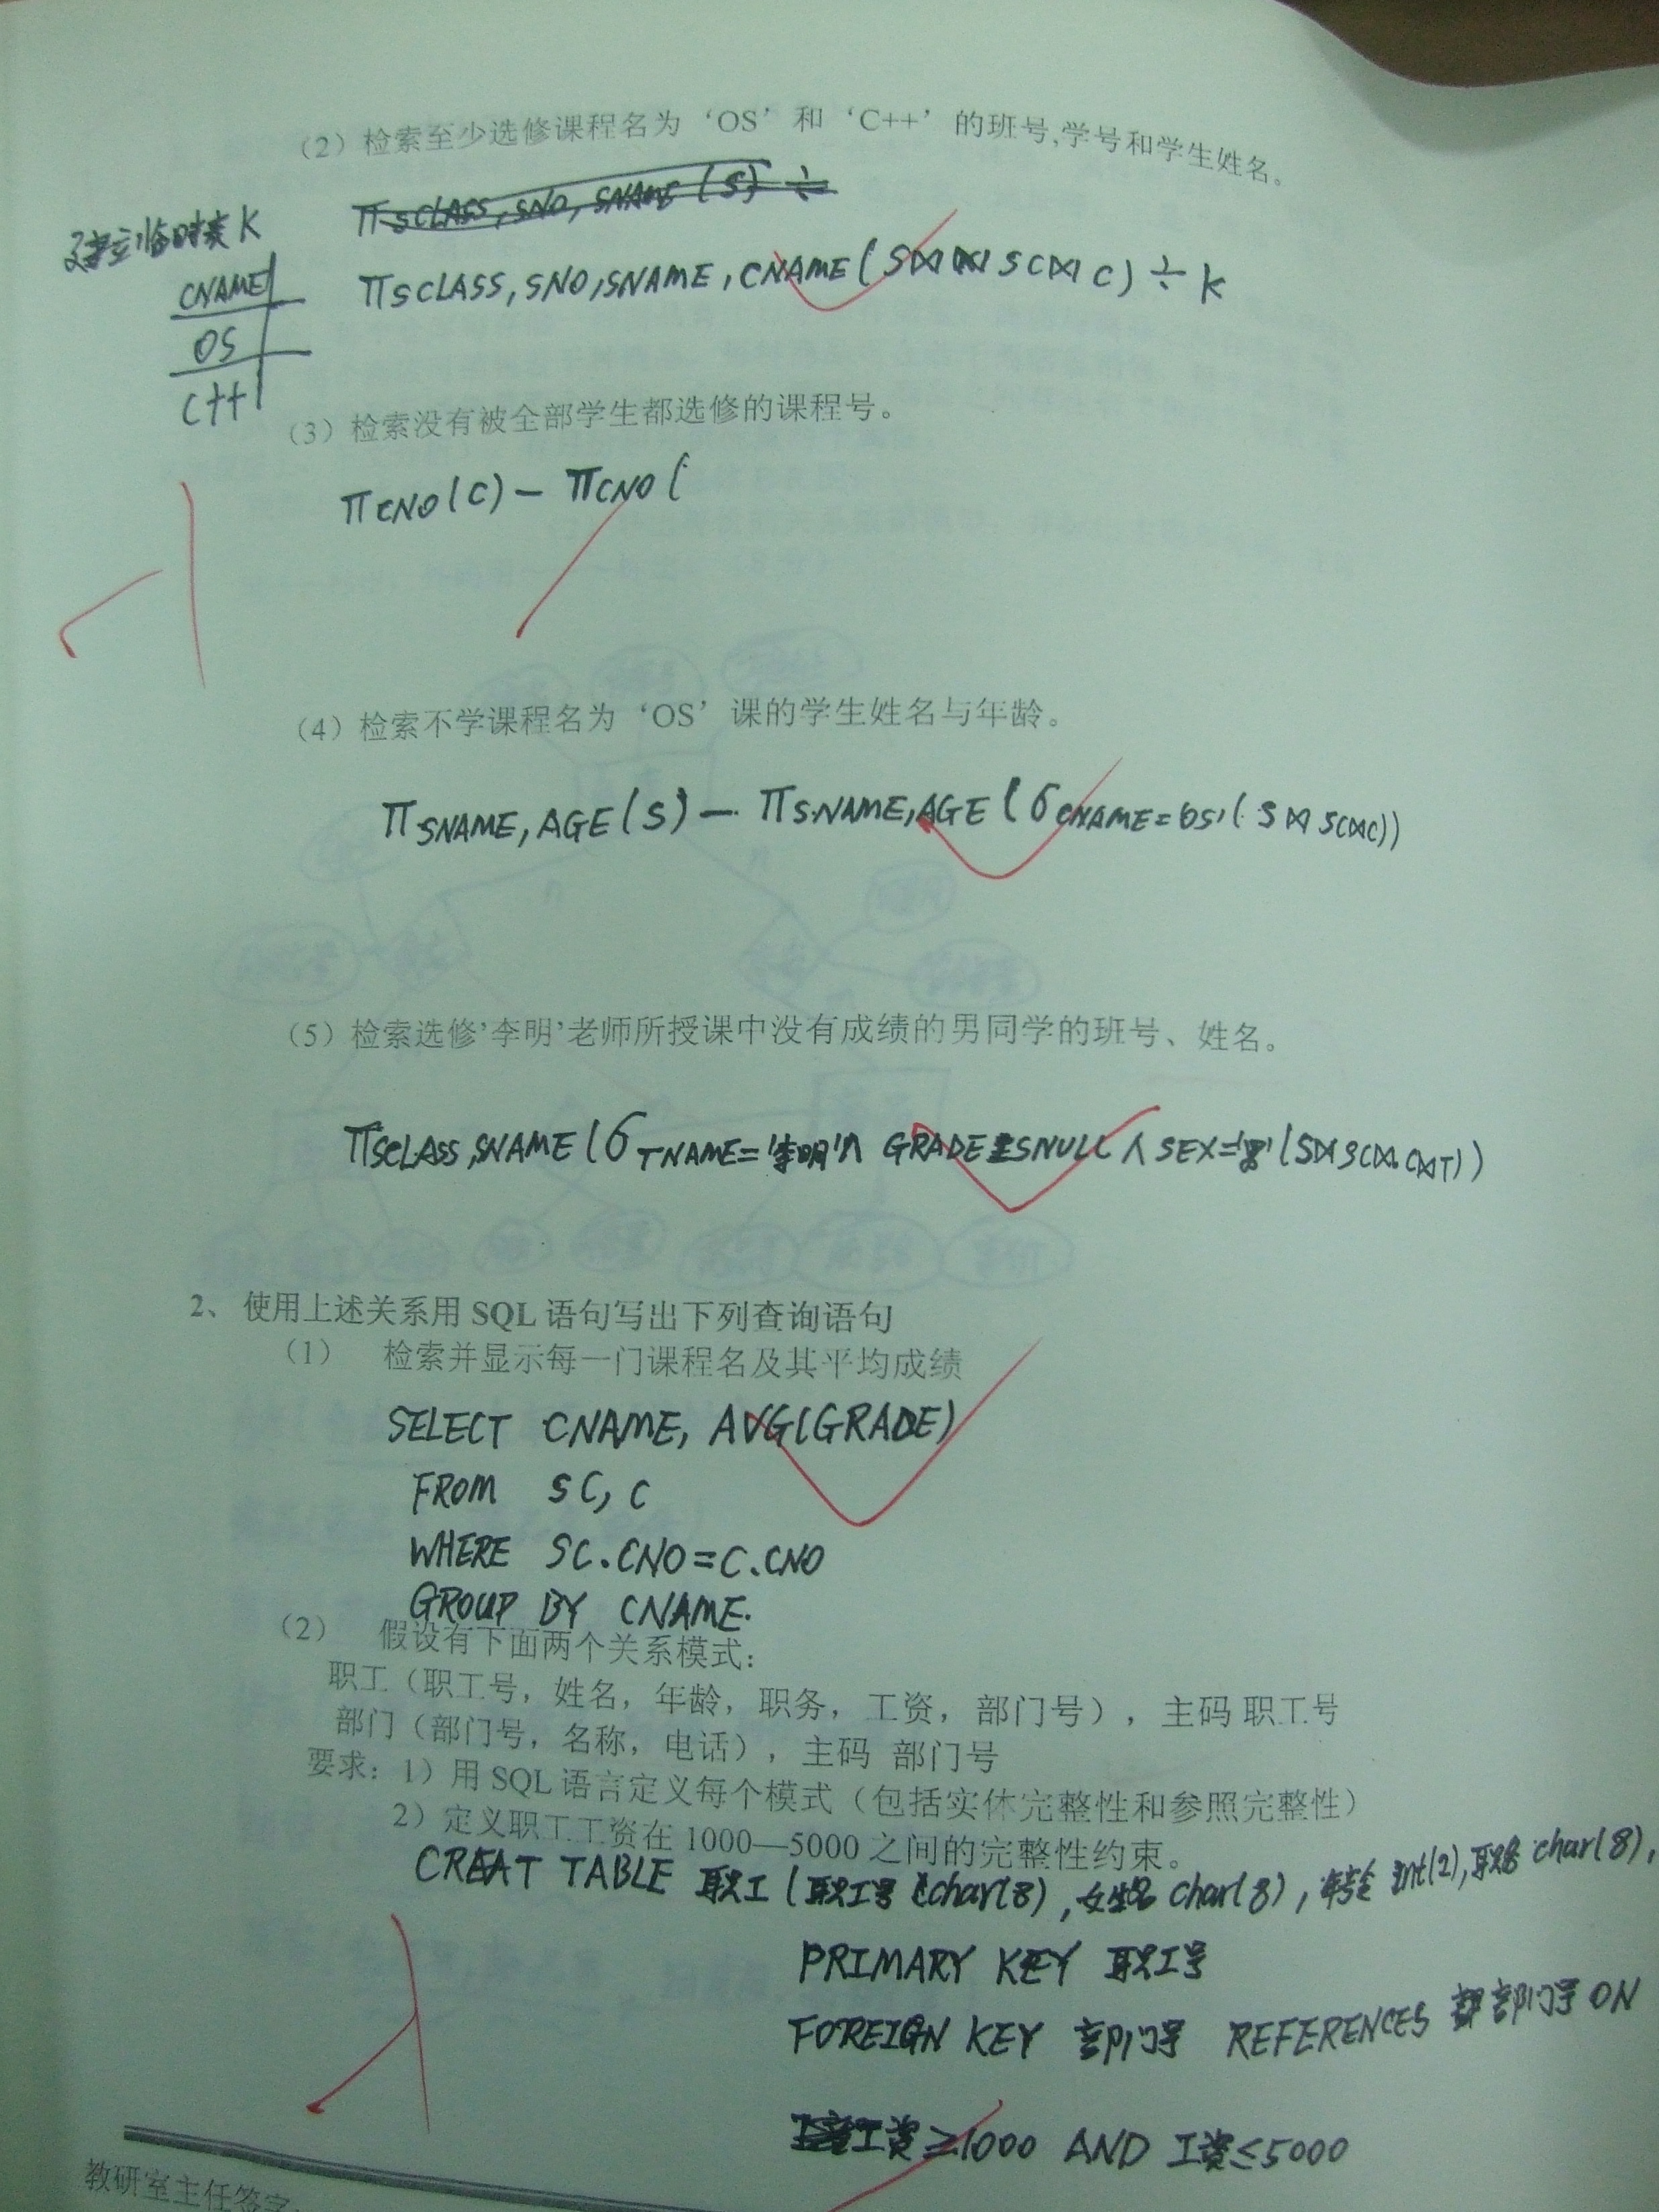 （2）检索至少选修课程名为‘OS’和‘C++’的班号,学号和学生姓名。
πSCLASS,SNO,SNAME(S)÷
建立临时表K
CNAME
OS
C++
πSCLASS,SNO,SNAME,CNAME(S⋈SC⋈C)÷K
（3）检索没有被全部学生都选修的课程号。
πCNO(C)-πCNO(
（4）检索不学课程名为‘OS’课的学生姓名与年龄。
πSNAME,AGE(S)-πSNAME,AGE(σCNAME='OS'(S⋈SC⋈C))
（5）检索选修’李明’老师所授课中没有成绩的男同学的班号、姓名。
πSCLASS,SNAME(σTNAME='李明'∧GRADE ISNULL∧SEX='男'(S⋈SC⋈C⋈T))
2、使用上述关系用SQL语句写出下列查询语句
（1） 检索并显示每一门课程名及其平均成绩
SELECT CNAME, AVG(GRADE)
FROM SC, C
WHERE SC.CNO=C.CNO
GROUP BY CNAME.
（2） 假设有下面两个关系模式：
职工（职工号，姓名，年龄，职务，工资，部门号），主码 职工号
部门（部门号，名称，电话），主码 部门号
要求：1）用SQL语言定义每个模式（包括实体完整性和参照完整性）
2）定义职工工资在1000—5000之间的完整性约束。
CREAT TABLE 职工(职工号 char(8),姓名 char(8),年龄 int(2),职务 char(8),
PRIMARY KEY 职工号
FOREIGN KEY 部门号 REFERENCES 部门号 ON
工资≥1000 AND 工资≤5000
教研室主任签字: